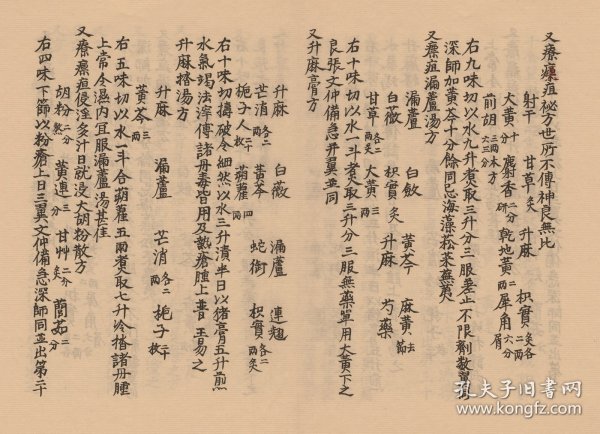 又療瘭疽秘方世所不傳神良無比
射干 甘草炙 升麻 枳實炙各二兩
大黃十分 麝香二分研 乾地黃二兩 犀角六分屑
前胡三兩本方六三分
右九味切以水九升煮取三升分三服差止不限劑數
深師加黃芩十分餘同忌海藻菘菜蕪荑
又療疽漏蘆湯方
漏蘆 白斂 黃芩 麻黃去節
白薇 枳實炙 升麻 芍藥
甘草各二兩炙 大黃三兩
右十味切以水一斗煮取三升分三服無藥單用大黃下之
良張文仲備急千金翼並同
又升麻膏方
升麻 白薇 漏蘆 連翹
芒消二兩 黃芩 蛇銜 枳實各三兩炙
梔子廿枚 蒴藋四兩
右十味切擣破令細然以水三升漬半日以猪膏五升煎
水氣竭法滓傅諸丹毒皆用及熱瘡腫上 昔王易之
升麻搨湯方
升麻 漏蘆 芒消各二兩 梔子二十枚
黃芩三兩
右五味切以水一斗合蒴藋五兩煮取七升冷搨諸丹腫
上常令濕內宜服漏蘆湯甚佳
又療瘭疽侵淫多汁日就浸大胡粉散方
胡粉二分熬 黃連三分 甘草二分炙 䕡茹二分
右四味下篩以粉瘡上日三翼文仲備急深師同並出第二十
孔夫子旧書网
www.kongfz.com